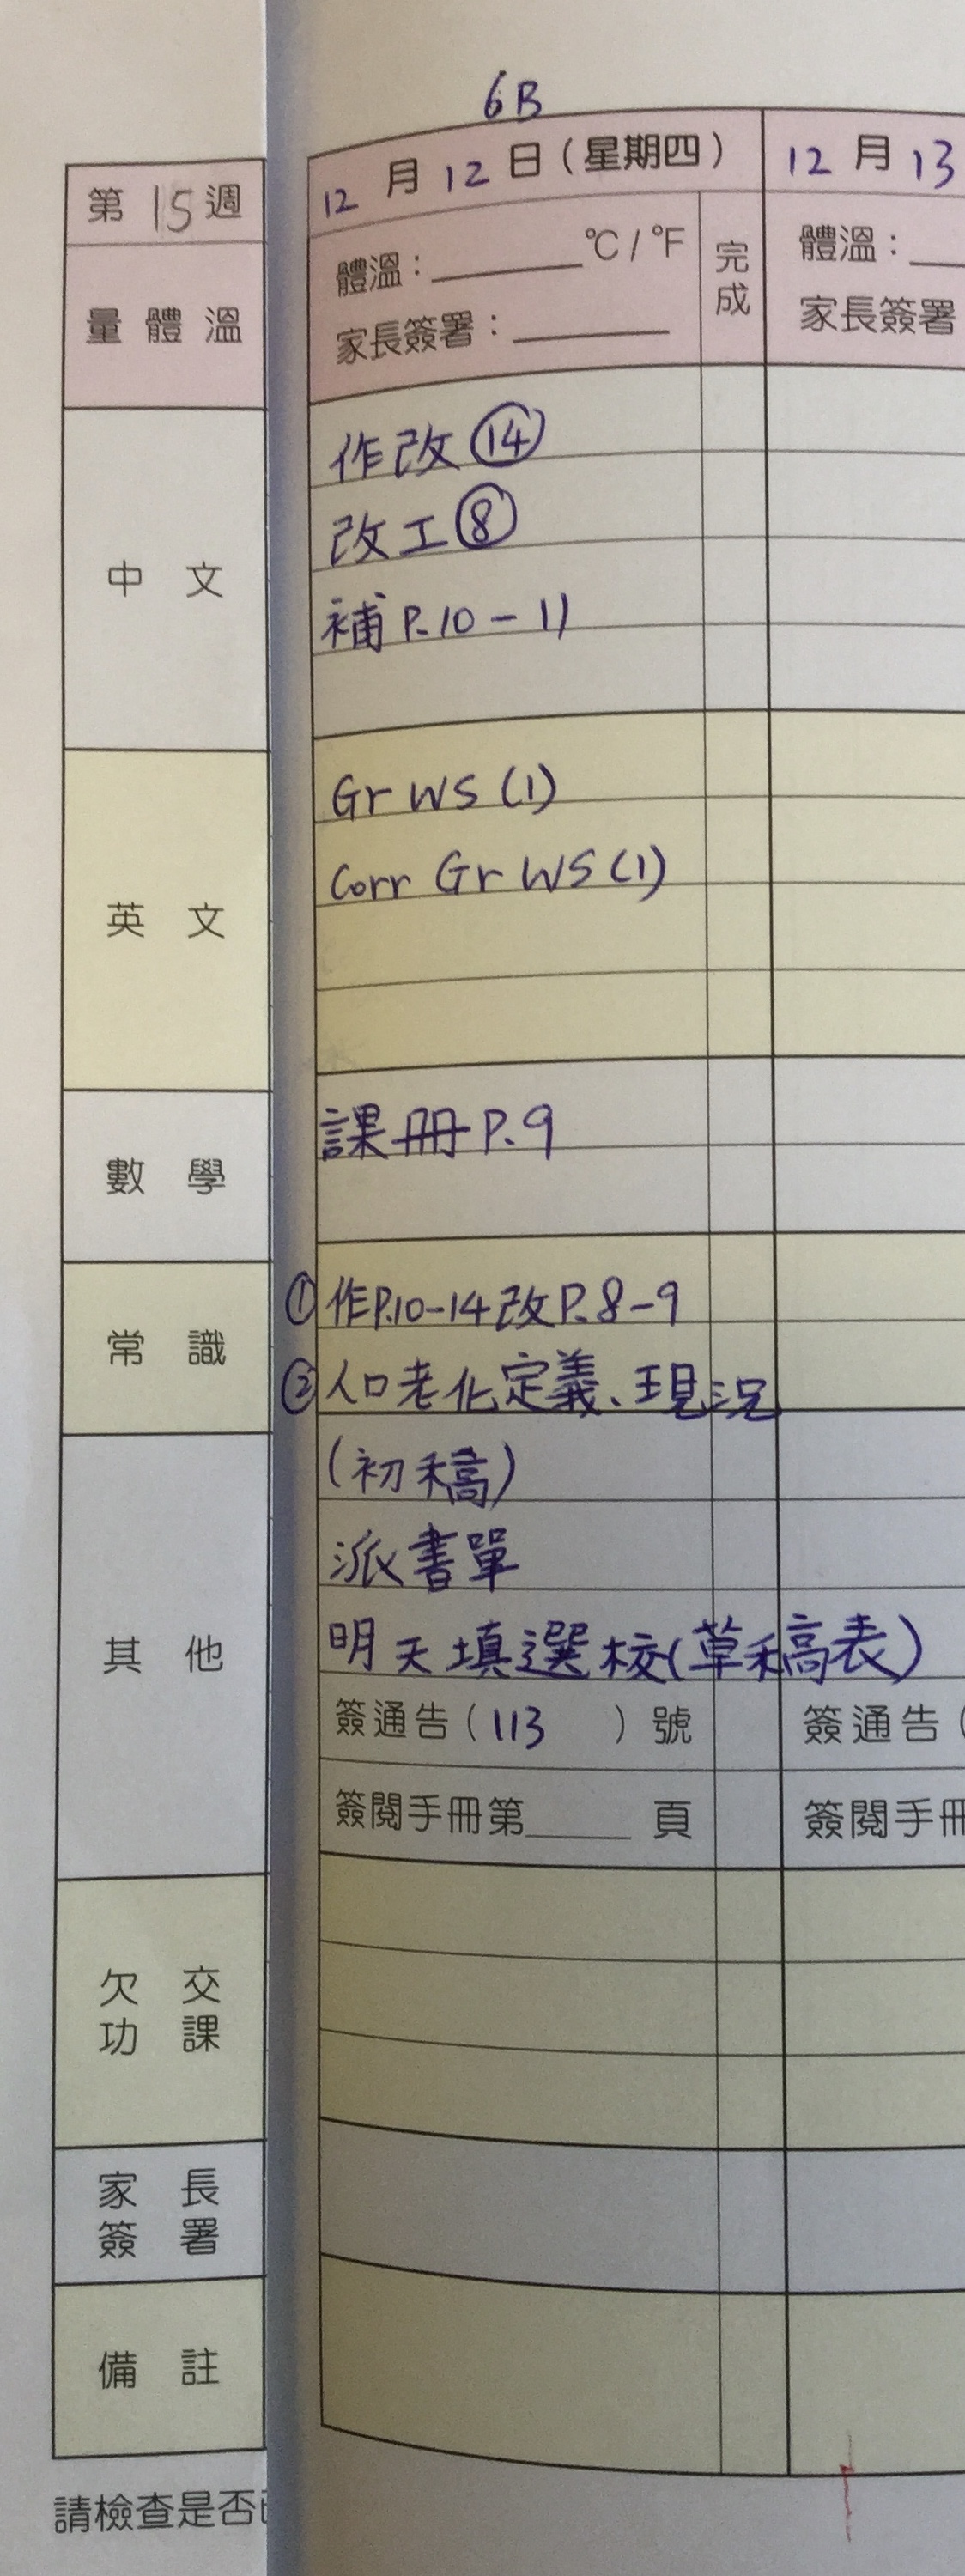 6B
第 15 週
12 月 12 日（星期四）
12 月 13
量體溫
體溫：______°C / °F
完成
家長簽署：______
體溫：
家長簽署
中文
作改⑭
改工⑧
補 P.10-11
英文
Gr WS (1)
Corr Gr WS (1)
數學
課冊 P.9
常識
① 作P.10-14 改P.8-9
② 人口老化定義、現況
其他
(初稿)
派書單
明天填選校(草稿表)
簽通告（113 ）號
簽通告（
簽閱手冊第____頁
簽閱手冊
欠交功課
家長簽署
備註
請檢查是否